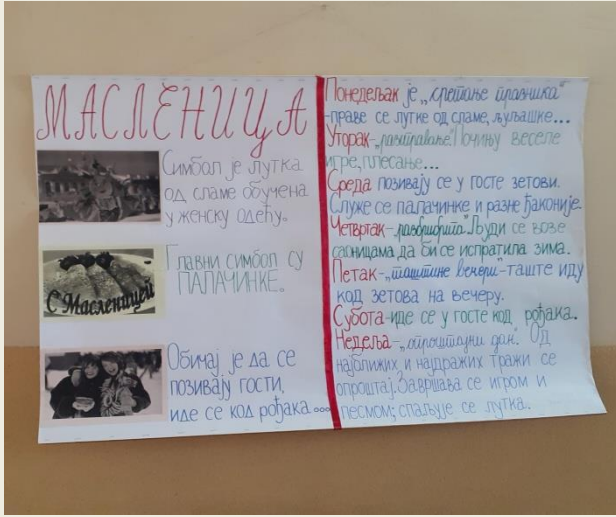 МАСЛЕНИЦА
Симбол је лутка
од сламе обучена
у женску одећу..
С Масленицей
Главни симбол су
ПАЛАЧИНКЕ..
Обичај је да се
позивају гости,
иде се код рођака....
Понедељак је „сретање празника“
-праве се лутке од сламе, љуљашке...
Уторак-„разигравање“. Почињу веселе
игре, плесање...
Среда позивају се у госте зетови.
Служе се палачинке и разне ђаконије.
Четвртак-„разбибрига“. Људи се возе
саоницама да би се испратила зима.
Петак-„таштине вечери“-таште иду
код зетова на вечеру.
Субота-иде се у госте код рођака..
Недеља-„опроштајни дан“. Од
најближих и најдражих тражи се
опроштај. Завршава се игром и
песмом; спаљује се лутка..